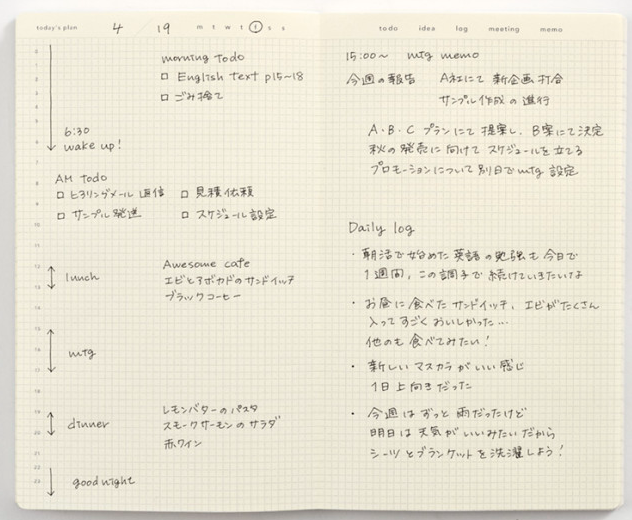 today's plan 4 / 19 m t w t f s s
morning todo
□ English text p15~18
□ ごみ捨て
6:30
wake up!
AM todo
□ ヒアリングメール 返信 □ 見積依頼
□ サンプル発送 □ スケジュール設定
Awesome cafe
lunch エビとアボカドのサンドイッチ
ブラックコーヒー
mtg
レモンバターのパスタ
dinner スモークサーモンのサラダ
赤ワイン
good night
todo idea log meeting memo
15:00~ mtg memo
今週の報告 A社にて新企画打合
サンプル作成の進行
A・B・Cプランにて提案し、B案にて決定
秋の発売に向けてスケジュールを立てる
プロモーションについて別日でmtg設定
Daily log
・朝活で始めた英語の勉強も今日で
1週間、この調子で続けていきたいな
・お昼に食べたサンドイッチ、エビがたくさん
入ってすごくおいしかった…
他のも食べてみたい!
・新しいマスカラがいい感じ
1日上向きだった
・今週はずっと雨だったけど
明日は天気がいいみたいだから
シーツとブランケットを洗濯しよう!